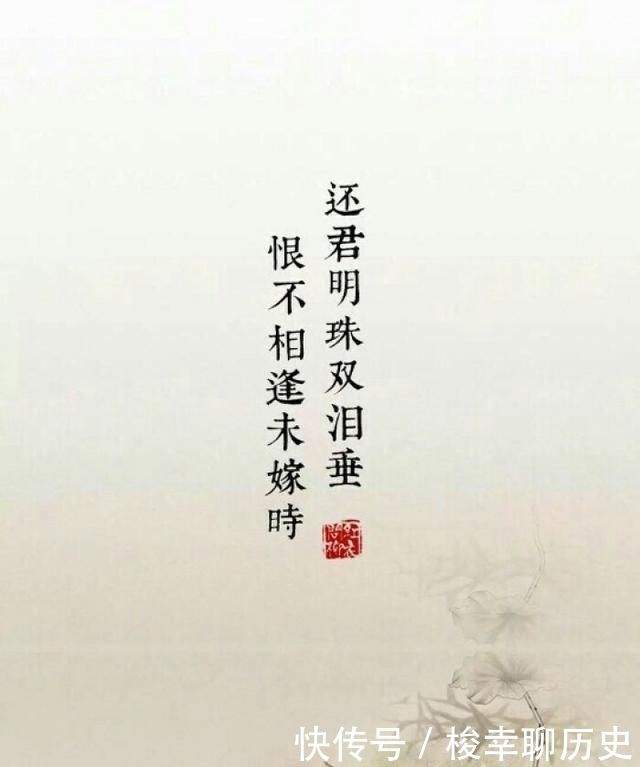 还君明珠双泪垂
恨不相逢未嫁時
快传号 / 梭幸聊历史